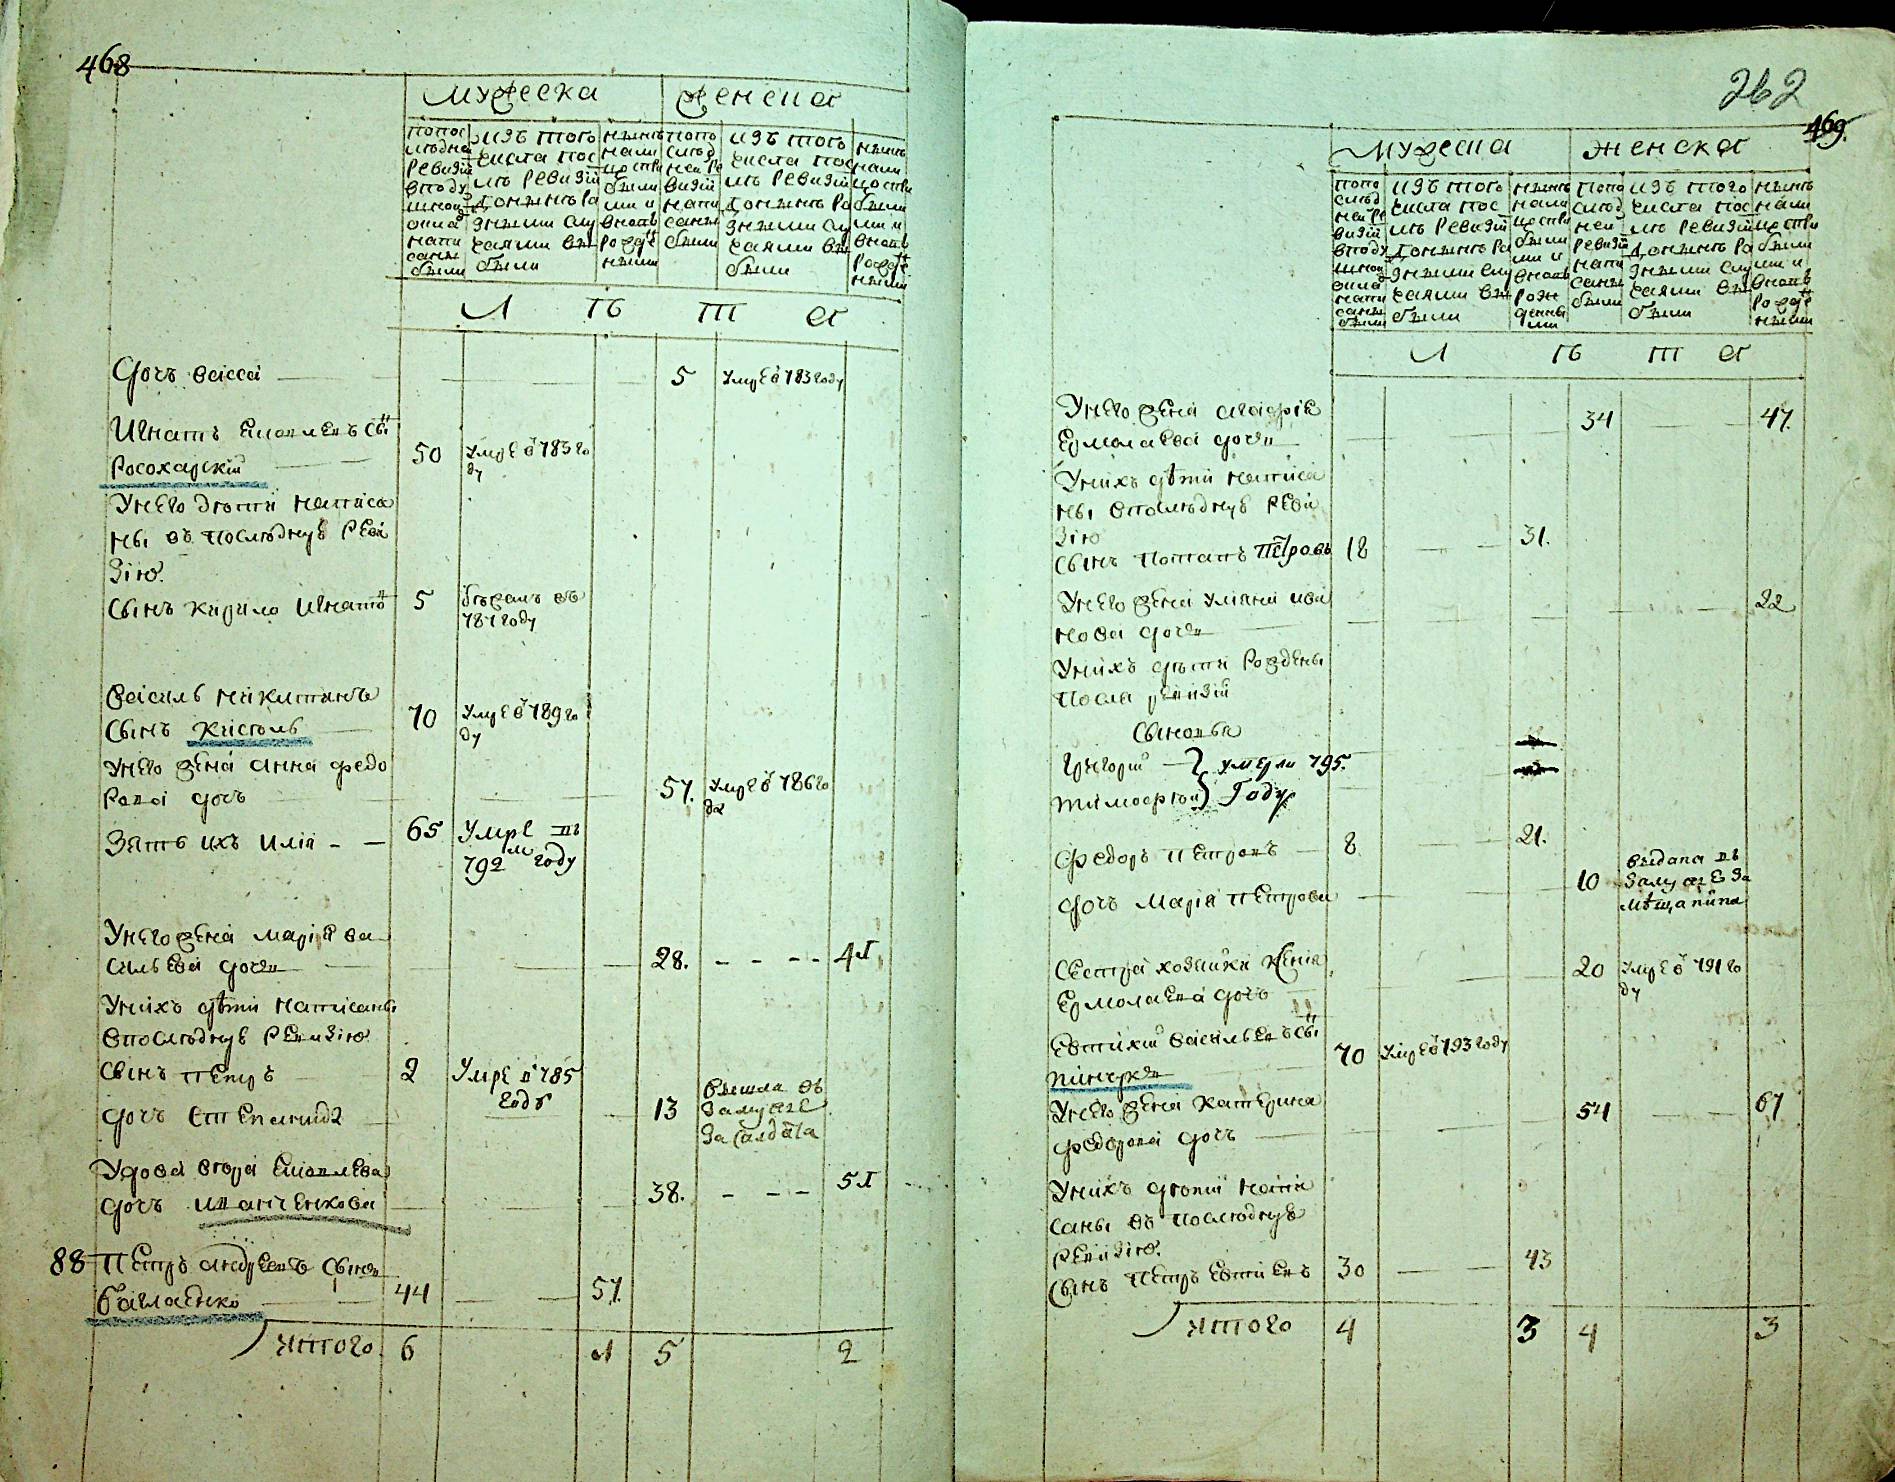 468
мужеска женска
по пос
лѣдне
ревизіи
в поду
шной
окла
напи
саны
были
изъ того
числа пос
лѣ ревизіи
до нынѣ ра
зными слу
чаями вы
были
нынѣ
нали
цо сти
были
ми и
вновь
рожде
ными
по по
слѣд
ней ре
визіи
напи
саны
были
изъ того
числа пос
лѣ ревизіи
до нынѣ ра
зными слу
чаями вы
были
нынѣ
нали
цо сти
были
ми и
вновь
рожде
ными
Л ѣ т а
Дочъ Васса 5 умре в 783 году
Игнатъ Яковлевъ сы
Росохацкій 50 умре в 783 го
ду
У него дѣти написа
ны въ последную реви
зію
Сынъ Кирило Игнато 5 бѣжалъ въ
787 году
Василь Никитинъ
Сынъ Кисіоль 70 умре в 789 го
ду
У него жена Анна Федо
рова дочъ 57. умре в 786 го
да
Зять ихъ Илія 65 умре въ
792м году
У него жена Марія Ва
сильева дочь 28. 41
У нихъ дѣти написаны
в последную ревизію
Сынъ Петръ 2 умре в 785
году
Дочъ Степанида 13 вышла въ
замужѣ
за салдата
Удова Явдокія Яковлева
дочъ Иванченкова 38. 51
88 Петръ Андреевъ сынъ
Баглаенко 44 57.
Итого 6 1 5 2
262
469.
мужеска женска
по по
слѣд
ней ре
визіи
в поду
шной
окла
напи
саны
были
изъ того
числа пос
лѣ ревизіи
до нынѣ ра
зными слу
чаями вы
были
нынѣ
нали
цо сти
были
ми и
вновь
рож
денны
ми
по по
слѣд
ней
ревизіи
напи
саны
были
изъ того
числа пос
лѣ ревизіи
до нынѣ ра
зными слу
чаями вы
были
нынѣ
нали
цо сти
были
ми и
вновь
рожде
ными
Л ѣ т а
У него жена Агафія
Ермолаева дочь 34 47.
У нихъ дѣти написа
ны в последную реви
зію
Сынъ Потапъ Петровъ 18 31.
У него жена Уліяна Ива
нова дочь 22
У нихъ дѣти рождены
посля ревизіи
Сыновья
Григорій умерли 795.
Тимофѣй Году
Федоръ Петровъ 8 21.
Дочъ Марія Петрова 10 выдана въ
замужѣ за
мѣщанина
Сестра хозяйки Ксенія
Ермолаева дочь 20 умре в 791 го
ду
Евтихій Васильевъ сы
Пинчукъ 70 умре в 793 году
У него жена Катерина
Федорова дочъ 54 67
У нихъ дѣтей напи
саны въ последную
ревизію.
Сынъ Петръ Евтиевъ 30 43
Итого 4 3 4 3